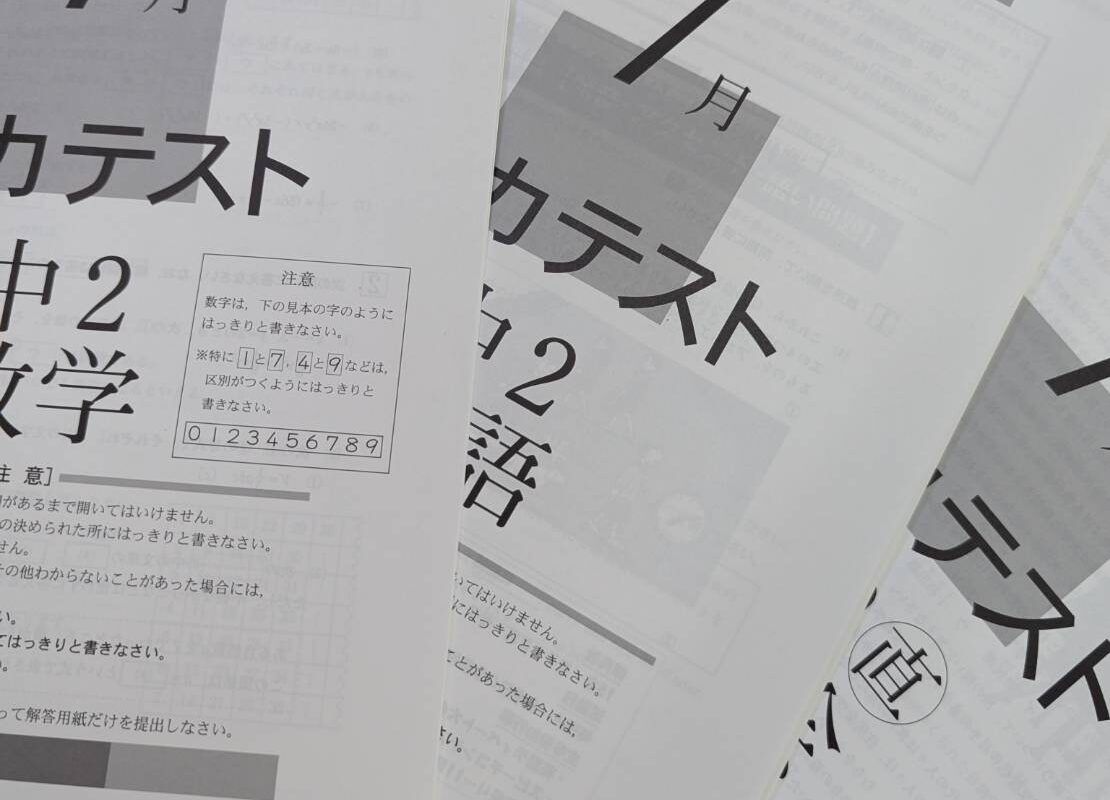 月
力テスト
中2
数学
注意
数字は，下の見本の字のように
はっきりと書きなさい。
※特に1と7，4と9などは，
区別がつくようにはっきりと
書きなさい。
0123456789
注 意]
があるまで開いてはいけません。
の決められた所にはっきりと書きなさい。
せん。
その他わからないことがあった場合には，
い。
てはっきりと書きなさい。
い。
って解答用紙だけを提出しなさい。
7月
力テスト
中2
語
いてはいけません。
にはっきりと書きなさい。
ことがあった場合には，
さい。
テスト
直